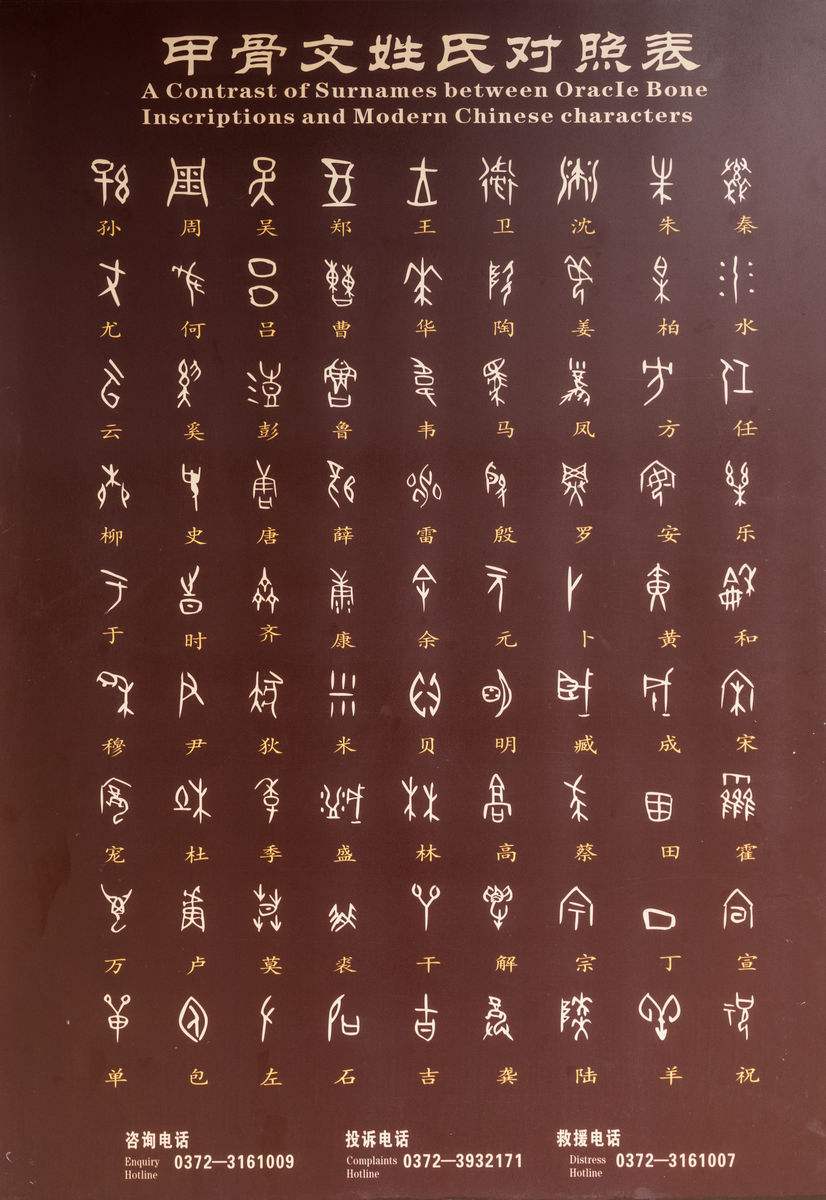 甲骨文姓氏对照表
A Contrast of Surnames between OracIe Bone
Inscriptions and Modern Chinese characters
孙 周 吴 郑 王 卫 沈 朱 秦
尤 何 吕 曹 华 陶 姜 柏 水
云 奚 彭 鲁 韦 马 凤 方 任
柳 史 唐 薛 雷 殷 罗 安 乐
于 时 齐 康 余 元 卜 黄 和
穆 尹 狄 米 贝 明 臧 成 宋
宠 杜 季 盛 林 高 蔡 田 霍
万 卢 莫 裘 干 解 宗 丁 宣
单 包 左 石 吉 龚 陆 羊 祝
咨询电话
Enquiry Hotline 0372—3161009
投诉电话
Complaints Hotline 0372—3932171
救援电话
Distress Hotline 0372—3161007